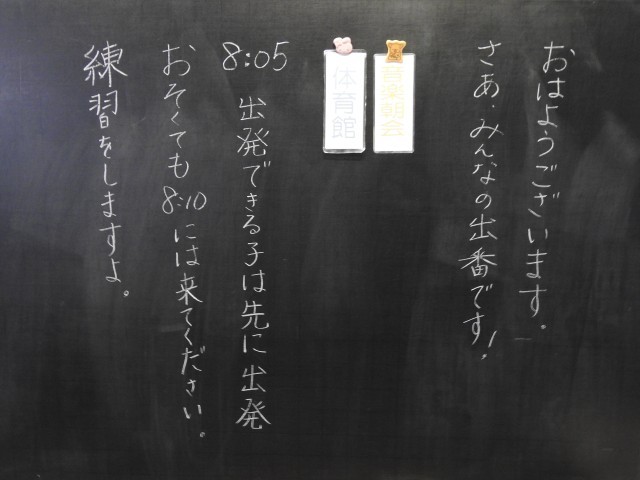 おはようございます。
さあ、みんなの出番です!
音楽朝会
体育館
8:05 出発できる子は先に出発
おそくても8:10には来てください。
練習をしますよ。